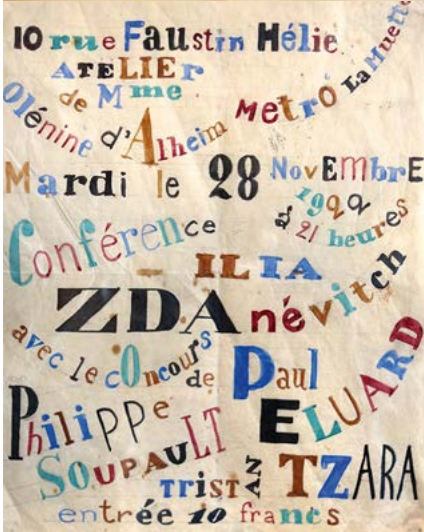 10 rue Faustin Hélie
Métro La Muette
ATELIEr
de Mme
Olénine d'Alheim
Mardi le 28 NovEMbrE
1922
à 21 heures
Conférence
ILIA
ZDAnévitch
avec le cOncours de
Paul
ELUARD
Philippe
SOUPAULT
TrisTAN TZARA
entrée 10 francs